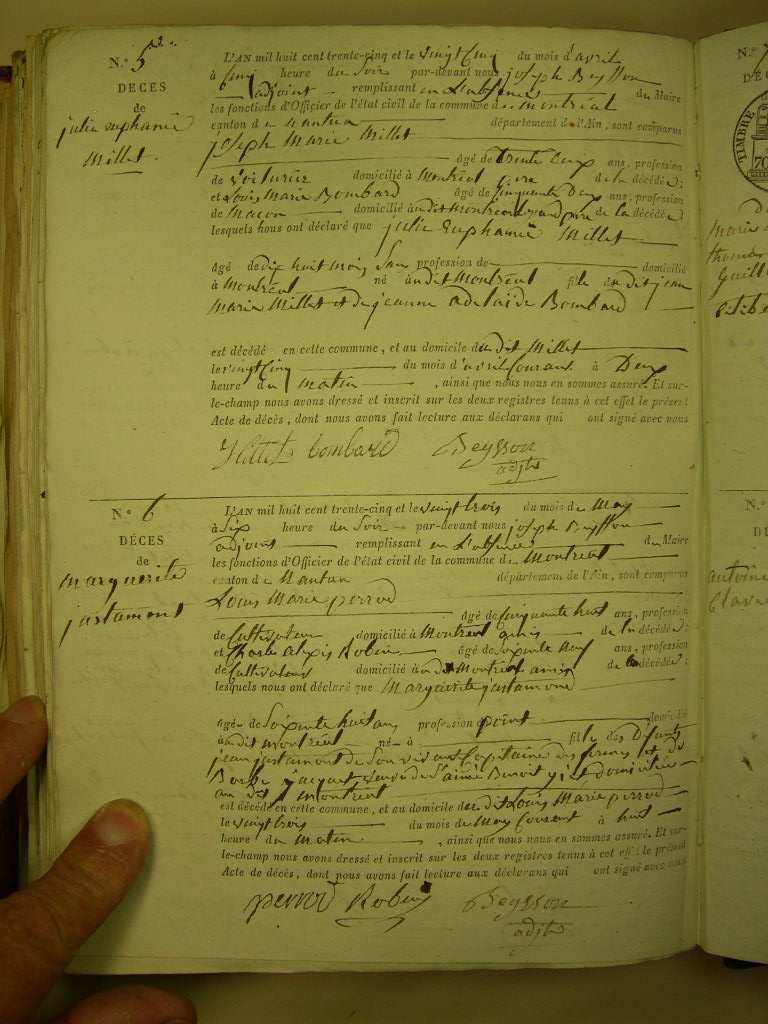 N.° 5
DÉCÈS
de
julie euphanie
Millet.
L'AN mil huit cent trente-cinq et le vingt cinq du mois d'avril
à cinq heure du soir par-devant nous joseph Beysson
adjoint remplissant en L'absence du Maire
les fonctions d'Officier de l'état civil de la commune de Montréal
canton de Nantua département de l'Ain, sont comparus
joseph Marie Millet
âgé de trente cinq ans, profession
de Voiturier domicilié à Montréal père de la décédée ;
et Louis Marie Bombard âgé de cinquante Deux ans, profession
de Maçon domicilié à udit Montréal grand père de la décédée
lesquels nous ont déclaré que julie Euphanie Millet
âgé de dix huit mois San profession de domicilié
à Montréal né à udit Montréal fille du dit jean
Marie Millet et de jeanne adelaïde Bombard
est décédé en cette commune, et au domicile du dit Millet
le vingt cinq du mois d'avril Courant à Deux
heure du matin , ainsi que nous nous en sommes assuré. Et sur-
le-champ nous avons dressé et inscrit sur les deux registres tenus à cet effet le présent
Acte de décès, dont nous avons fait lecture aux déclarans qui ont signé avec nous
Millet bombard Beysson
adjt
N.° 6
DÉCES
de
marguerite
jastamont
L'AN mil huit cent trente-cinq et le vingt trois du mois de May
à Six heure du Soir par-devant nous joseph Beysson
adjoint remplissant en L'absence du Maire
les fonctions d'Officier de l'état civil de la commune de Montréal
canton de Nantua département de l'Ain, sont comparus
Louis Marie perrod
âgé de Cinquante huit ans, profession
de Cultivateur domicilié à Montréal amis de la décédée ;
et Charles alexis Robin âgé de Soixante neuf ans, profession
de Cultivateur domicilié à udit Montréal amis de la décédée ;
lesquels nous ont déclaré que Marguerite jastamond
agée de Soixante huit ans profession point domicilié
à udit montréal né à fille des Défunts
jean jastamont de Son vivant Capitaine des fermes et de
Barbe jacquet veuve de aimé Benoit y domiciliée
au dit Montréal
est décédé en cette commune, et au domicile du dit Louis Marie perrod
le vingt trois du mois de May Courant à huit
heure du Matin , ainsi que nous nous en sommes assuré. Et sur-
le-champ nous avons dressé et inscrit sur les deux registres tenus à cet effet le présent
Acte de décès, dont nous avons fait lecture aux déclarans qui ont signé avec nous
perrod Robin Beysson
adjt
TIMBRE
70
Marie
thomas
Guill
antoine
Clav